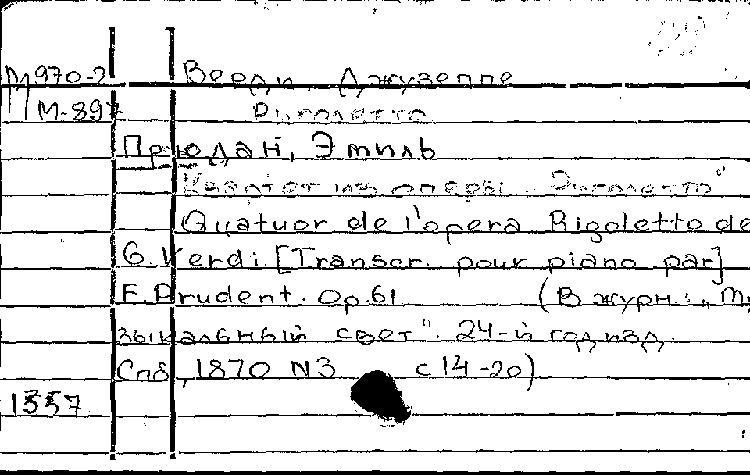 М970-2 Верди, Джузеппе
М-897 Риголетто
Прюдан, Эмиль
Квартет из оперы „Риголетто"
Quatuor de l'opera Rigoletto de
G. Verdi [Transcr. pour piano par]
E. Prudent. Op. 61 (В журн.: „Му
зыкальный свет". 24-й год изд.
Спб, 1870 N3 с 14-20)
1557